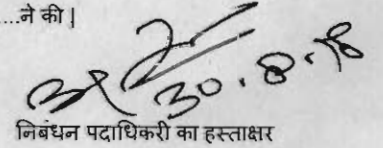 ...ने की |
30.8.18
निबंधन पदाधिकरी का हस्ताक्षर